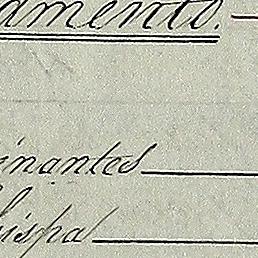 amento.
inantes
hispa